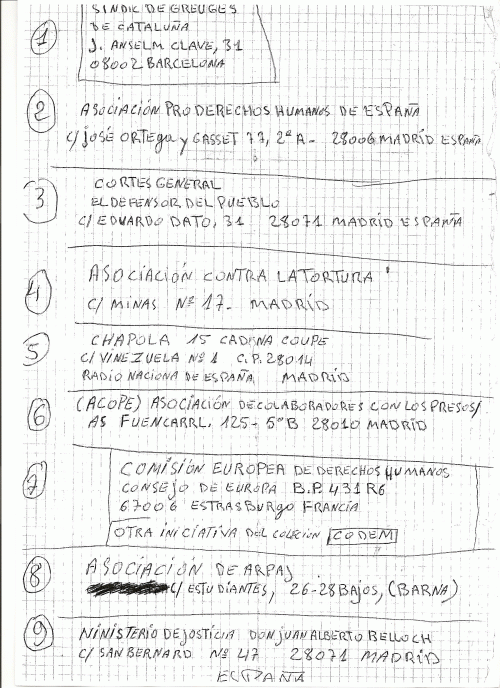 1
SINDIC DE GREUGES
DE CATALUÑA
J. ANSELM CLAVE, 31
08002 BARCELONA
2
ASOCIACIÓN PRO DERECHOS HUMANOS DE ESPAÑA
C/ JOSÉ ORTEGA y GASSET 77, 2º A- 28006 MADRÍD ESPAÑA
3
CORTES GENERAL
EL DEFENSOR DEL PUEBLO
C/ EDUARDO DATO, 31 28071 MADRID ESPAÑA
4
ASOCIACIÓN CONTRA LA TORTURA
C/ MINAS Nº 17- MADRÍD
5
CHAPOLA 15 CADENA COUPE
C/ VINEZUELA Nº 1 C.P. 28014
RADIO NACIONA DE ESPAÑA, MADRID
6
(ACOPE) ASOCIACIÓN DE COLABORADORES CON LOS PRESOS/
AS FUENCARRL. 125- 5º B 28010 MADRÍD
7
COMISIÓN EUROPEA DE DERECHOS HUMANOS
CONSEJO DE EUROPA B.P. 431 R6
67006 ESTRASBURGO FRANCIA
OTRA INICIATIVA DEL COLECION CODEM
8
ASOCIACIÓN DE ARPAJ
C/ ESTUDIANTES, 26-28 BAJOS, (BARNA)
9
NINISTERIO DE JOSTICIA DON JUAN ALBERTO BELLOCH
C/ SAN BERNARD Nº 47 28071 MADRID
ESPAÑA